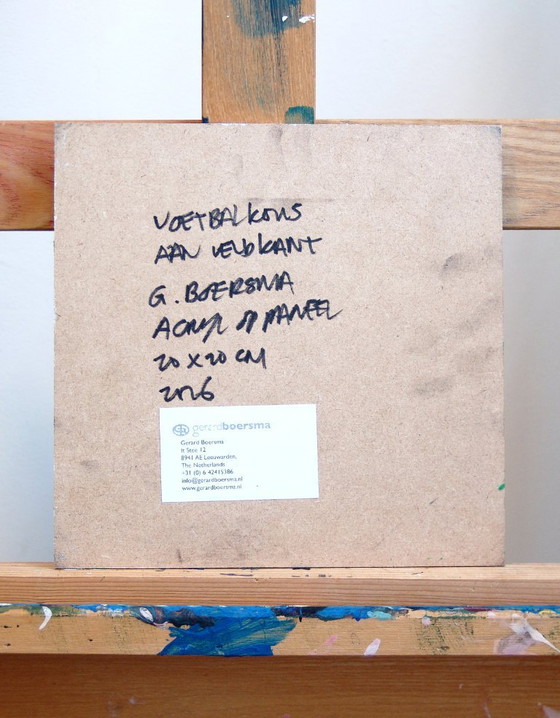 VOETBALKOUS
AAN VELDKANT
G. BOERSMA
ACRYL OP PANEEL
20 X 20 CM
2026
gerardboersma
Gerard Boersma
It Stee 12
8941 AE Leeuwarden,
The Netherlands
+31 (0) 6 42415386
info@gerardboersma.nl
www.gerardboersma.nl